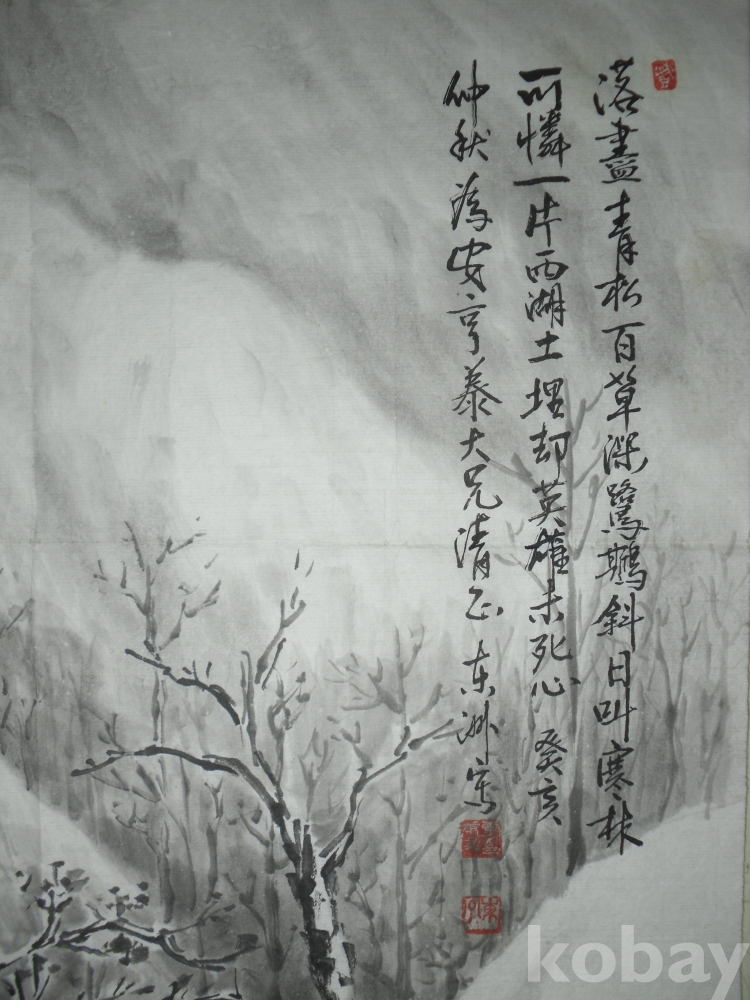 落盡青松百草深鷺鷀斜日叫寒林
可憐一片西湖土埋却英雄未死心 癸亥
仲秋為安亨泰大兄清正 東洲寫
kobay